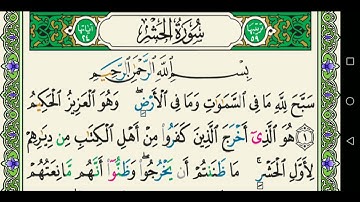 سُورَةُ الْحَشْرِ
بِسْمِ اللَّهِ الرَّحْمَٰنِ الرَّحِيمِ
سَبَّحَ لِلَّهِ مَا فِي السَّمَٰوَٰتِ وَمَا فِي الْأَرْضِ ۖ وَهُوَ الْعَزِيزُ الْحَكِيمُ
﴿١﴾ هُوَ الَّذِي أَخْرَجَ الَّذِينَ كَفَرُوا مِنْ أَهْلِ الْكِتَٰبِ مِن دِيَٰرِهِمْ
لِأَوَّلِ الْحَشْرِ ۚ مَا ظَنَنتُمْ أَن يَخْرُجُوا ۖ وَظَنُّوا أَنَّهُم مَّانِعَتُهُمْ